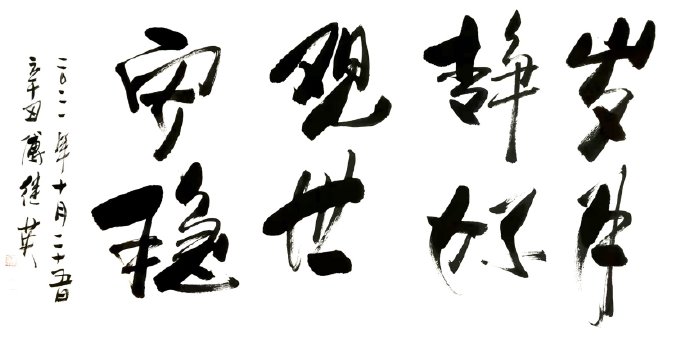 岁月
静好
现世
安稳
二〇二一年十月二十五日
傅继英